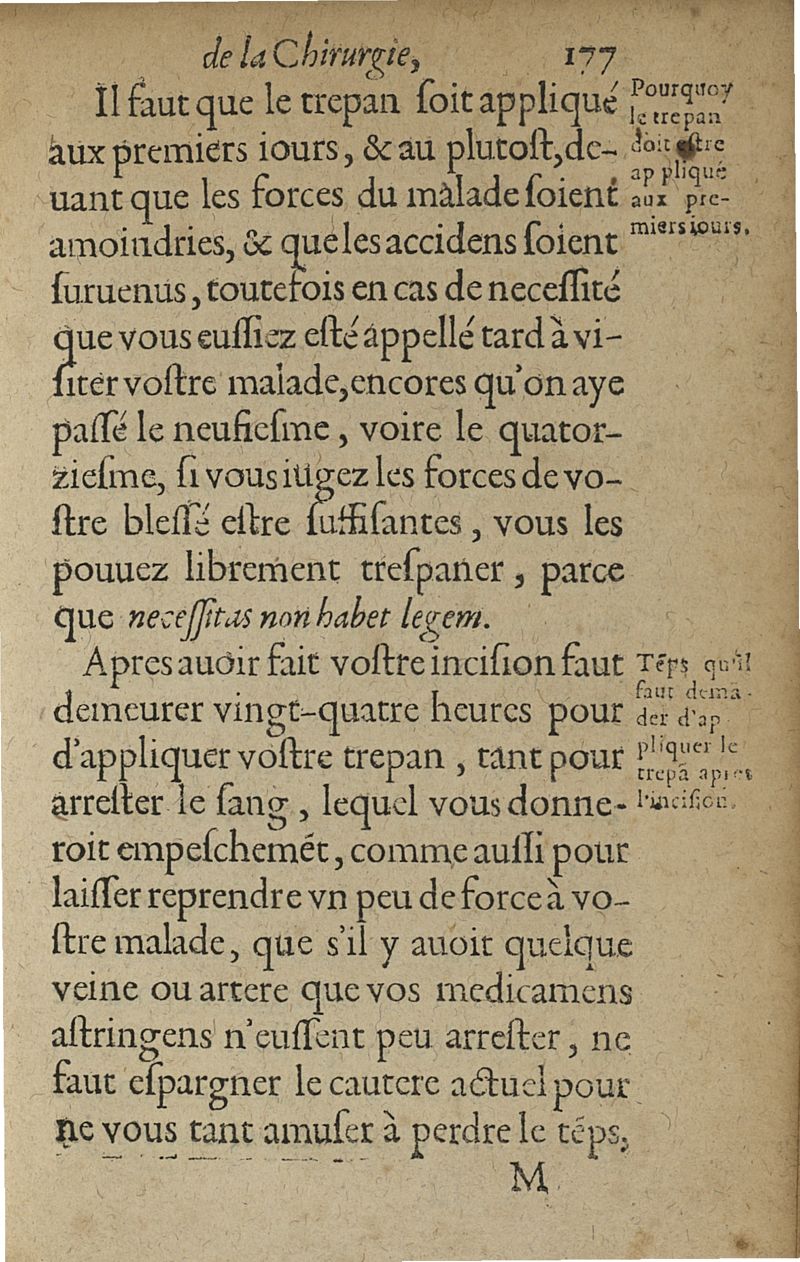 de la Chirurgie, 177
Il faut que le trepan ſoit appliqué
aux premiers iours, & au plutoſt, de-
uant que les forces du malade ſoient
amoindries, & que les accidens ſoient
ſuruenus, toutefois en cas de neceſſité
que vous euſſiez eſté appellé tard à vi-
ſiter voſtre malade, encores qu'on aye
paſſé le neufieſme, voire le quator-
zieſme, ſi vous iugez les forces de vo-
ſtre bleſſé eſtre ſuffiſantes, vous les
pouuez librement treſpaner, parce
que neceſſitas non habet legem.
Pourquoy
le trepan
doit eſtre
appliqué
aux pre-
miers iours.
Apres auoir fait voſtre inciſion faut
demeurer vingt-quatre heures pour
d'appliquer voſtre trepan, tant pour
arreſter le ſang, lequel vous donne-
roit empeſchemẽt, comme auſſi pour
laiſſer reprendre vn peu de force à vo-
ſtre malade, que s'il y auoit quelque
veine ou artere que vos medicamens
aſtringens n'euſſent peu arreſter, ne
faut eſpargner le cautere actuel pour
ne vous tant amuſer à perdre le tẽps,
Tẽps qu'il
faut demã-
der d'ap
pliquer le
trepã apres
l'inciſion.
M